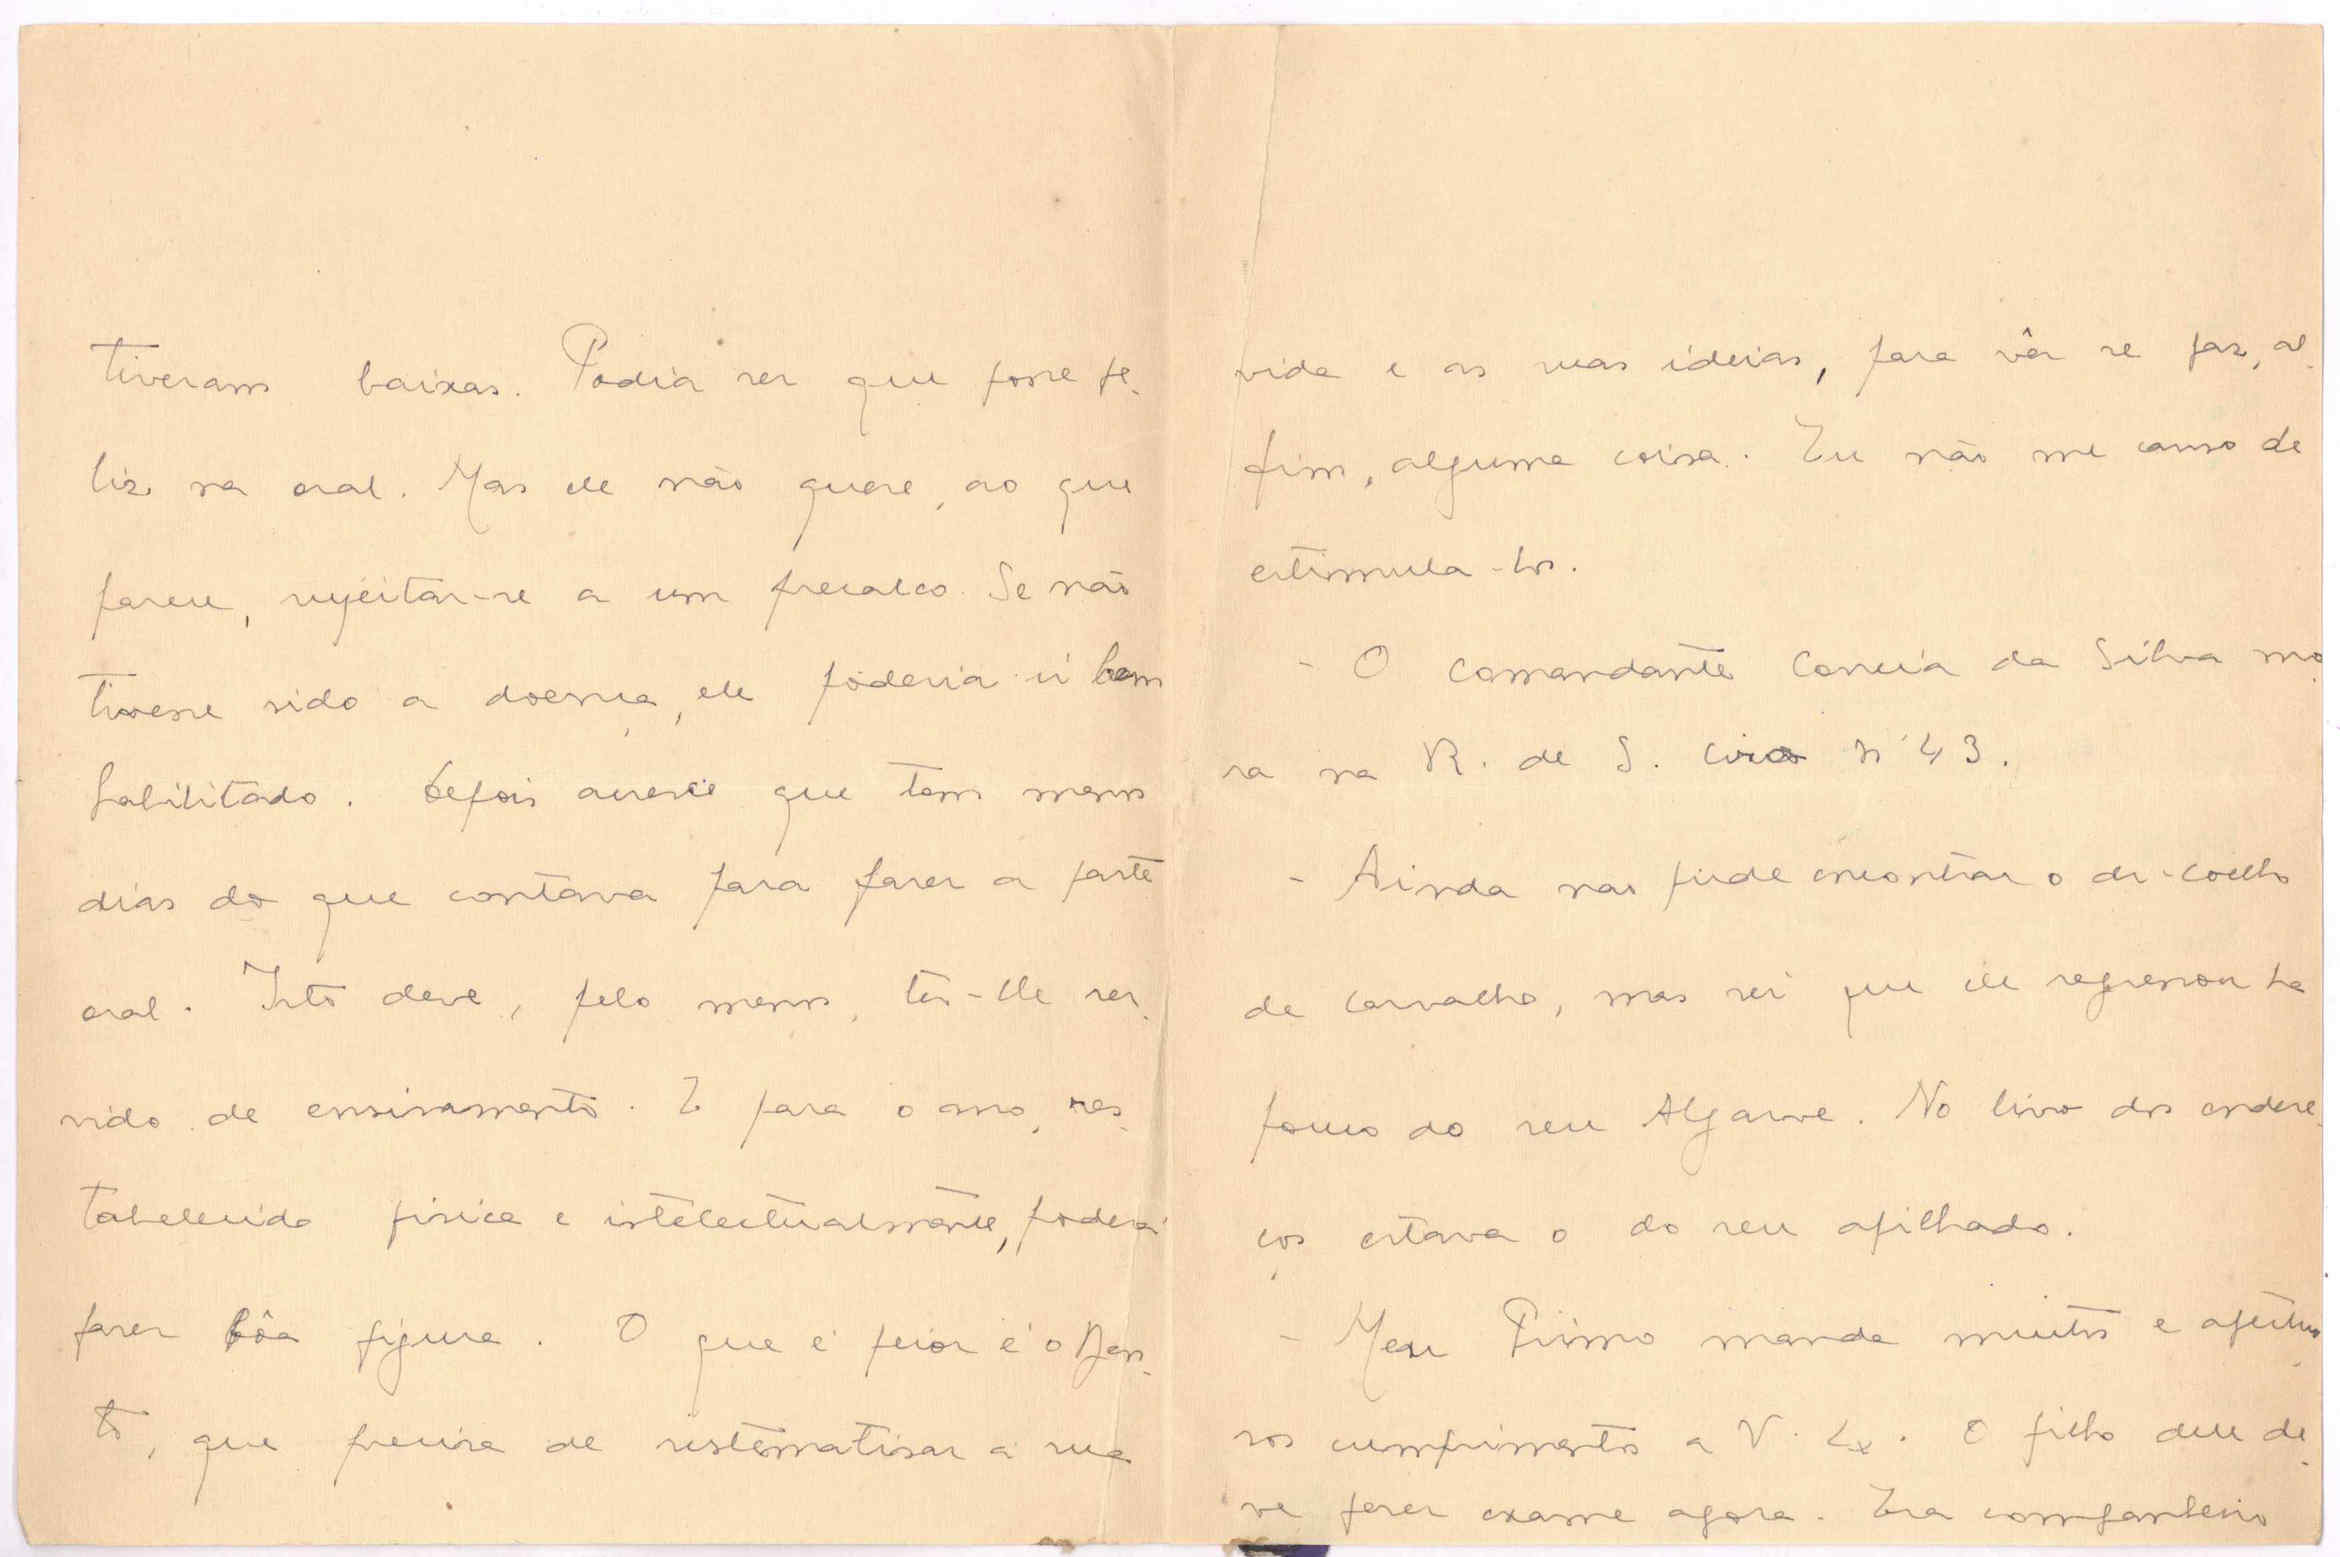 tiveram baixas. Podia ser que fosse fe-
liz na oral. Mas ele não quere, ao que
parece, sujeitar-se a um precalço. Se não
tivesse sido a doença, ele poderia ir bem
habilitado. Depois acresce que tem menos
dias do que contava para fazer a parte
oral. Isto deve, pelo menos, ter-lhe ser-
vido de ensinamento. E para o ano, res-
tabelecido fisica e intelectualmente, poderá
fazer bôa figura. O que é peior é o
que precisa de sistematisar a sua
vida e as suas ideias, para vêr se faz, al-
fim, alguma coisa. Eu não me canso de
estimula-los.
- O comandante Correia da Silva mo-
ra na R. de S. Ciro Nº 43.
- Ainda não pude encontrar o dr. Coelho
de Carvalho, mas sei que ele regressou ha
pouco do seu Algarve. No livro dos endere-
ços estava o do seu afilhado.
- Meu Primo manda muitos e afectuo-
sos cumprimentos a V. Ex. O filho deu de-
ve fazer exame agora. Era companheiro